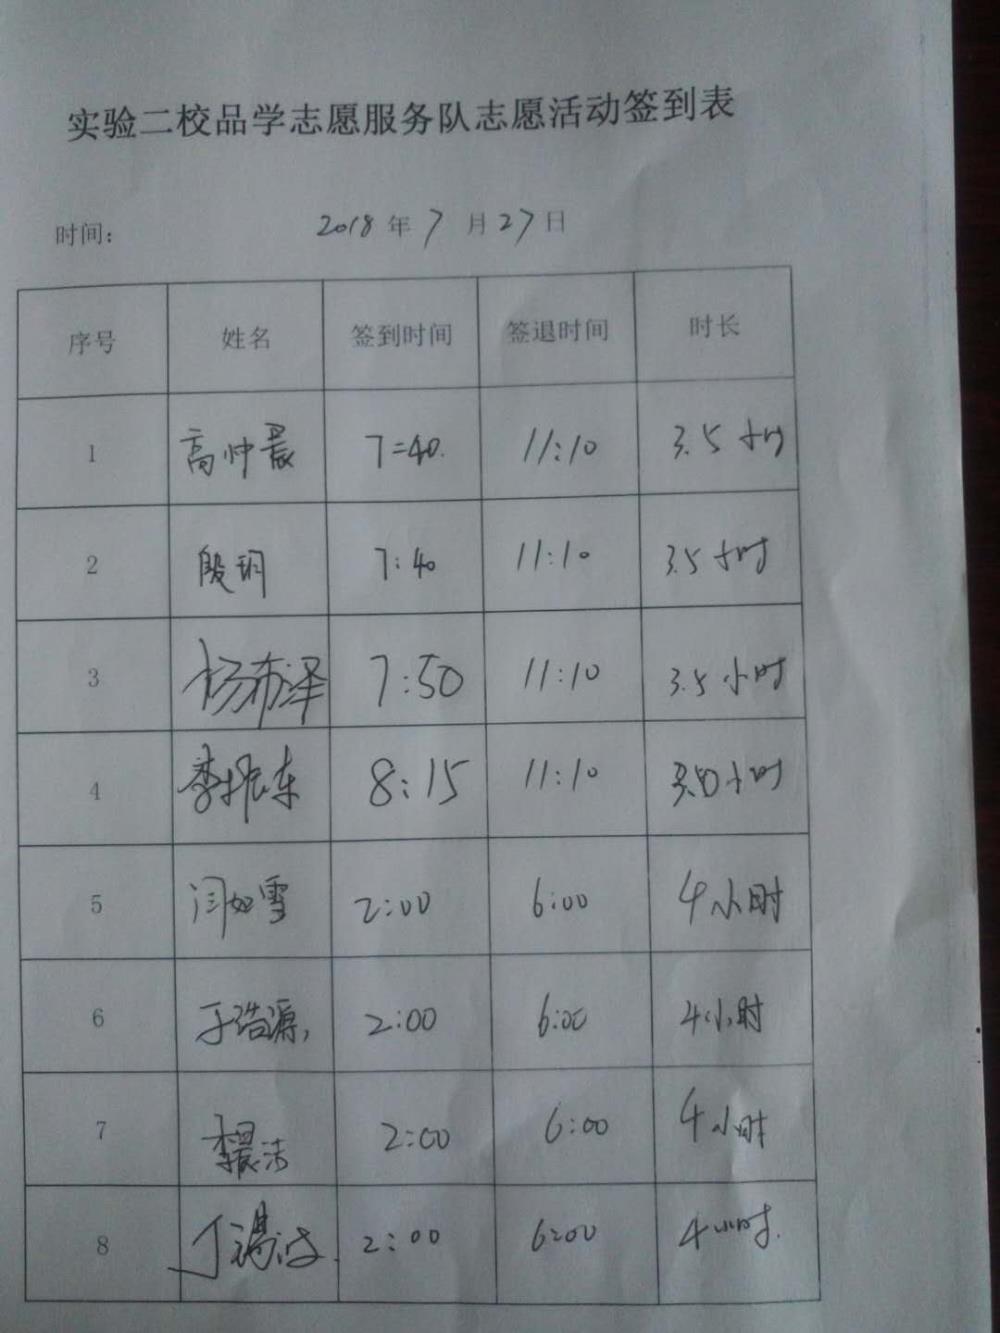 实验二校品学志愿服务队志愿活动签到表
时间: 2018 年 7 月 27 日
序号 姓名 签到时间 签退时间 时长
1 高帅晨 7:40. 11:10 3.5 小时
2 段玥 7:40 11:10 3.5 小时
3 杨希泽 7:50 11:10 3.5 小时
4 李振东 8:15 11:10 3.0 小时
5 闫如雪 2:00 6:00 4 小时
6 于浩源 2:00 6:00 4小时
7 李晨洁 2:00 6:00 4 小时
8 2:00 6:00 4 小时.